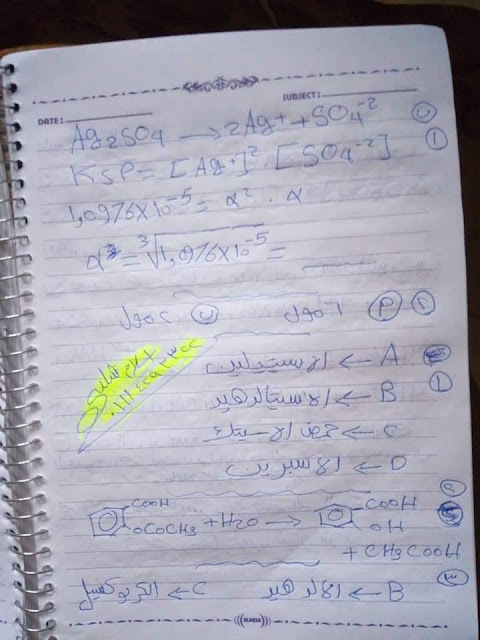 DATE :
SUBJECT :
Ag2SO4 → 2Ag+ + SO4-2
١
KsP = [Ag+]2 [SO4-2]
1,0976X10-5 = α2 . α
α3 = 3√1,0976X10-5 =
٢ P ٦ مول ب ٢ مول
A ← الاسيتيلين
١ B ← الاسيتالدهيد
C ← حمض الاسيتك
D ← الاسبرين
٢ COOH OCOCH3 + H2O → COOH OH
+ CH3COOH
٣ B ← الالدهيد C ← الكربوكسيل